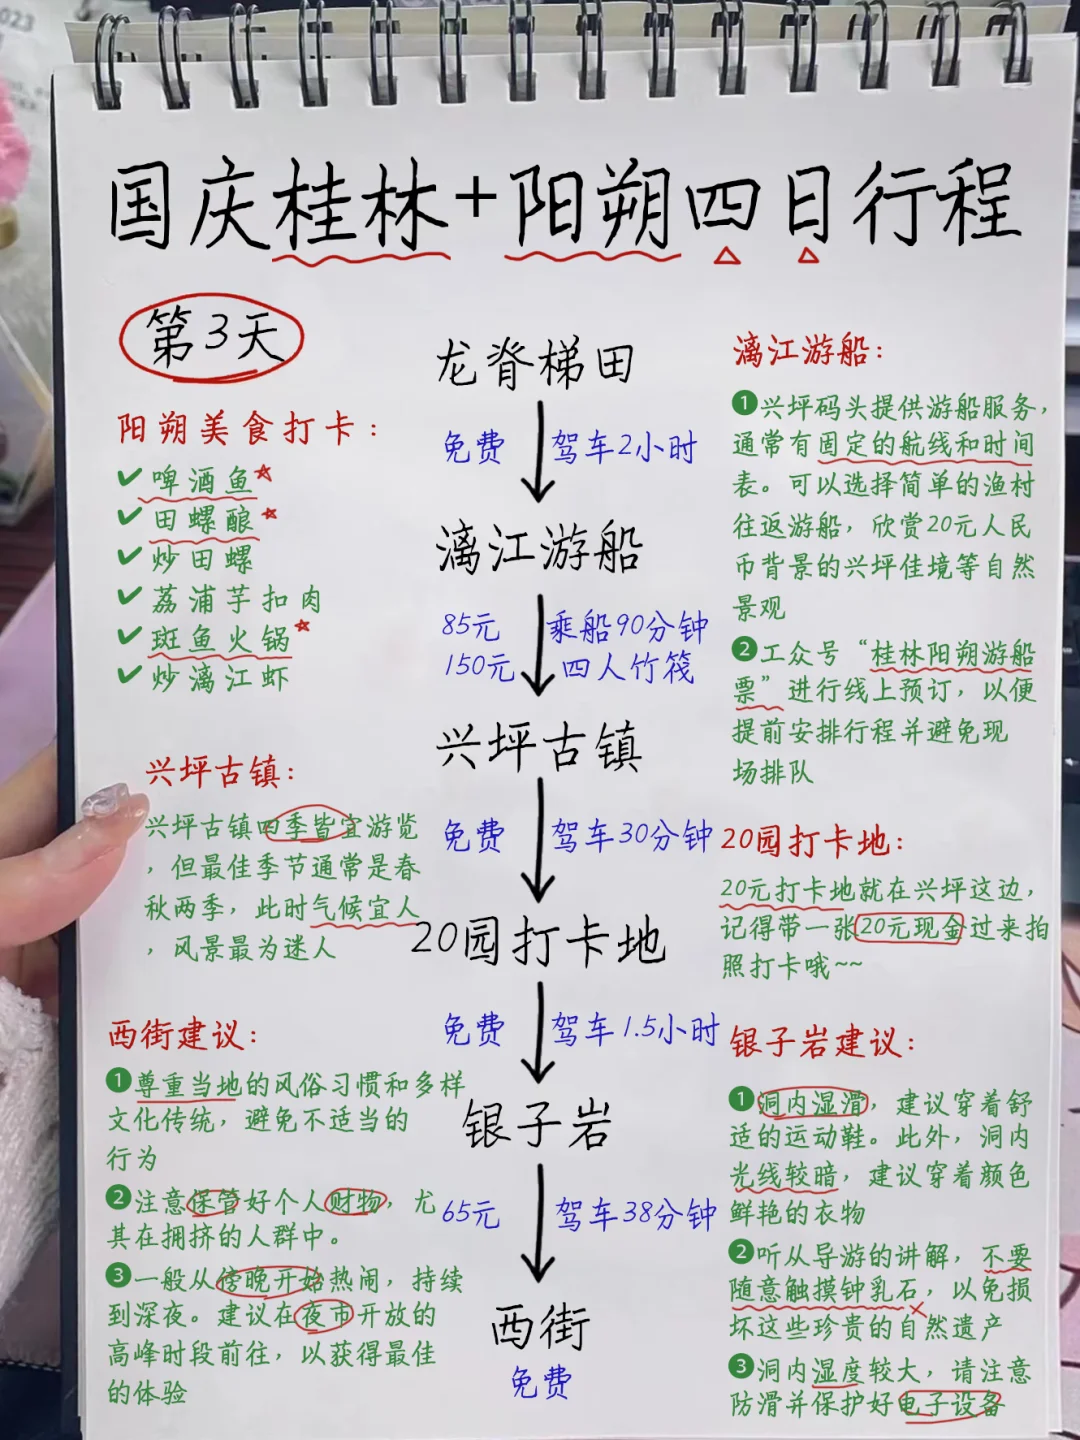 国庆桂林+阳朔四日行程
第3天
阳朔美食打卡：
啤酒鱼
田螺酿
炒田螺
荔浦芋扣肉
斑鱼火锅
炒漓江虾
兴坪古镇：
兴坪古镇四季皆宜游览
，但最佳季节通常是春
秋两季，此时气候宜人
，风景最为迷人
西街建议：
❶尊重当地的风俗习惯和多样
文化传统，避免不适当的
行为
❷注意保管好个人财物，尤
其在拥挤的人群中。
❸一般从傍晚开始热闹，持续
到深夜。建议在夜市开放的
高峰时段前往，以获得最佳
的体验
龙脊梯田
免费 驾车2小时
漓江游船
85元 乘船90分钟
150元 四人竹筏
兴坪古镇
免费 驾车30分钟
20园打卡地
免费 驾车1.5小时
银子岩
65元 驾车38分钟
西街
免费
漓江游船：
❶兴坪码头提供游船服务，
通常有固定的航线和时间
表。可以选择简单的渔村
往返游船，欣赏20元人民
币背景的兴坪佳境等自然
景观
❷工众号“桂林阳朔游船
票”进行线上预订，以便
提前安排行程并避免现
场排队
20园打卡地：
20元打卡地就在兴坪这边，
记得带一张20元现金过来拍
照打卡哦~~
银子岩建议：
❶洞内湿滑，建议穿着舒
适的运动鞋。此外，洞内
光线较暗，建议穿着颜色
鲜艳的衣物
❷听从导游的讲解，不要
随意触摸钟乳石，以免损
坏这些珍贵的自然遗产
❸洞内湿度较大，请注意
防滑并保护好电子设备